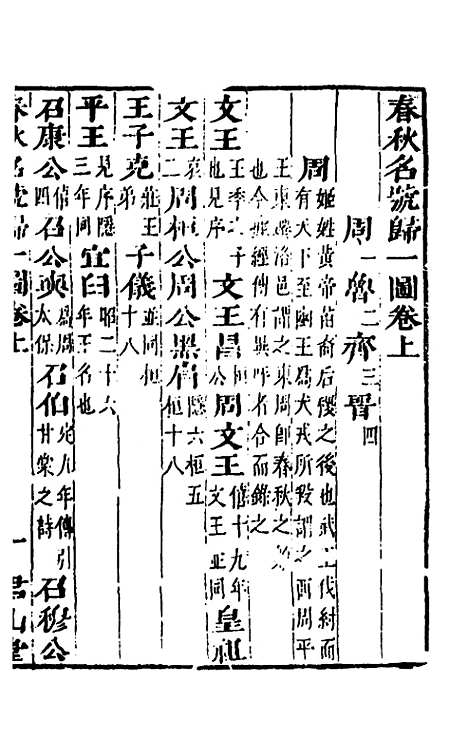 春秋名號歸一圖卷上
周一魯二齊三晉四
周姬姓黃帝苗裔后稷之後也武王伐紂而
有天下至幽王爲犬戎所殺謂之西周平
王東遷洛邑謂之東周即春秋之
也今據經傳有異呼者合而錄之
文王王季之子也見序文王昌公周文王僖十九年文王並同皇祖
文王哀二周桓公周公黑肩隱六桓五桓十八
王子克莊王弟子儀並同桓十八
平王見序隱三年同宜臼昭二十六年王名也
召康公僖四召公奭爲周太保召伯定九年傳引甘棠之詩召穆公
春秋名號歸一圖卷上 一 君山堂